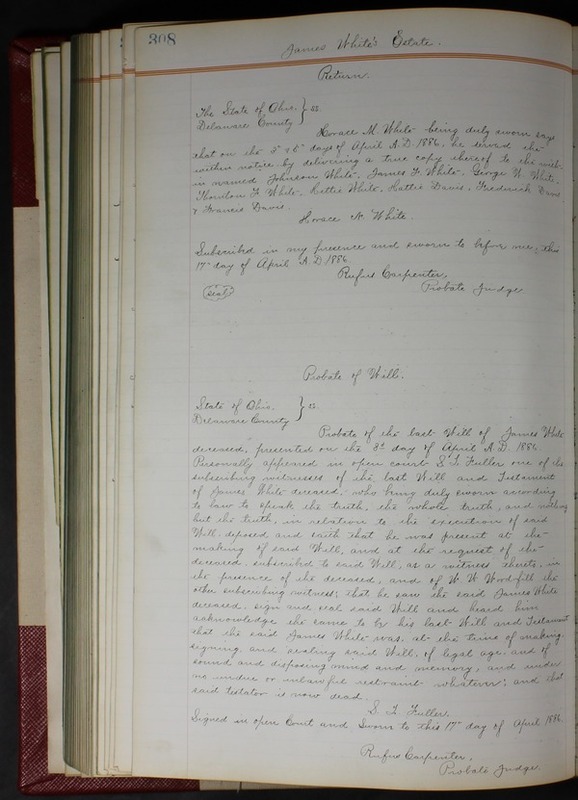 308
James White's Estate.
Return.
The State of Ohio. } ss.
Delaware County
Horace M. White being duly sworn says
that on the 3d & 6" days of April A.D. 1886, he served the
within notice by delivering a true copy thereof to the with-
in named Johnson White, James F. White, George W. White,
F. White, Hattie White, Hattie Davis, Frederick Davis
& Francis Davis.
Horace N. White.
Subscribed in my presence and sworn to before me, this
17" day of April A.D. 1886.
Rufus Carpenter,
Seal
Probate Judge
Probate of Will.
State of Ohio. } ss.
Delaware County
Probate of the last Will of James White
deceased, presented on the 3d day of April A.D. 1886.
Personally appeared in open court S. T. Fuller one of the
subscribing witnesses of the last Will and Testament
of James White deceased, who being duly sworn according
to law to speak the truth, the whole truth, and nothing
but the truth, in relation to the execution of said
Will, deposed, and saith that he was present at the
making of said Will, and at the request of the
deceased subscribed to said Will, as a witness thereto, in
the presence of the deceased, and of W. W. Woodfill the
other subscribing witness; that he saw the said James White
deceased, sign and seal said Will and heard him
acknowledge the same to be his last Will and Testament
that the said James White was, at the time of making,
signing, and sealing said Will, of legal age, and of
sound and disposing mind and memory, and under
no undue or unlawful restraint whatever; and that
said testator is now dead.
S. T. Fuller.
Signed in open Court and Sworn to this 17" day of April 1886.
Rufus Carpenter,
Probate Judge.